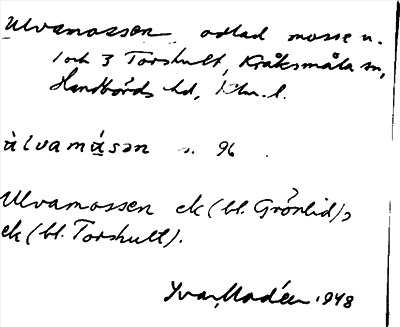 Ulvamossen odlad mosse n.
1 och 3 Torshult, Kråksmåla sn,
Handbörds hd, Klm. l.
ùlvamásən s. 96
Ulvamossen ek (bl. Grönlid),
ek (bl. Torshult).
Yvar Modéer 1948